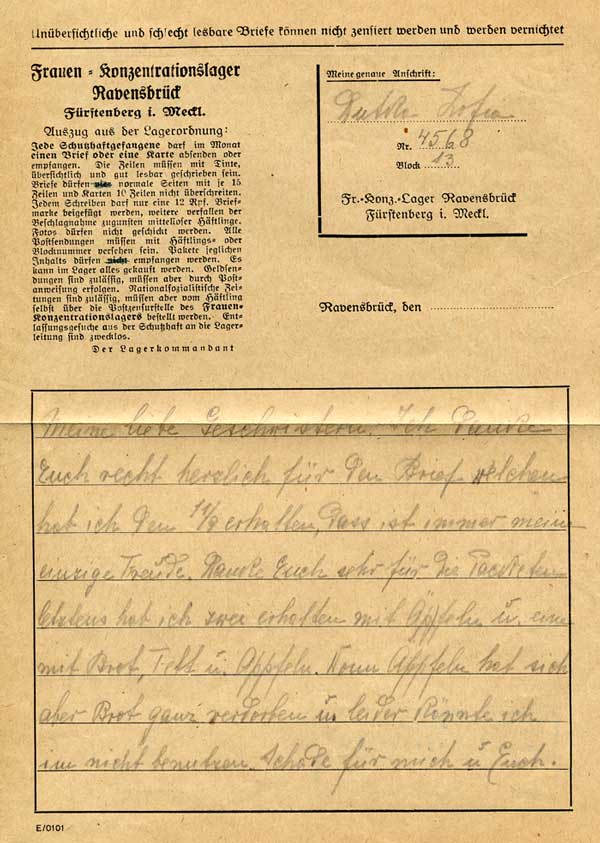 Unübersichtliche und schlecht lesbare Briefe können nicht zensiert werden und werden vernichtet
Frauen-Konzentrationslager
Ravensbrück
Fürstenberg i. Meckl.
Auszug aus der Lagerordnung:
Jede Schutzhaftgefangene darf im Monat
einen Brief oder eine Karte absenden oder
empfangen. Die Zeilen müssen mit Tinte,
übersichtlich und gut lesbar geschrieben sein.
Briefe dürfen normale Seiten mit je 15
Zeilen und Karten 10 Zeilen nicht überschreiten.
Jedem Schreiben darf nur eine 12 Rpf. Brief-
marke beigefügt werden, weitere verfallen der
Beschlagnahme zugunsten mittelloser Häftlinge.
Fotos dürfen nicht geschickt werden. Alle
Postsendungen müssen mit Häftlings- oder
Blocknummer versehen sein. Pakete jeglichen
Inhalts dürfen nicht empfangen werden. Es
kann im Lager alles gekauft werden. Geldsen-
dungen sind zulässig, müssen aber durch Post-
anweisung erfolgen. Nationalsozialistische Zei-
tungen sind zulässig, müssen aber vom Häftling
selbst über die Postzensurstelle des Frauen-
Konzentrationslagers bestellt werden. Ent-
lassungsgesuche aus der Schutzhaft an die Lager-
leitung sind zwecklos.
Der Lagerkommandant
Meine genaue Anschrift:
Zofia
Nr. 4568
Block 13
Fr.-Konz.-Lager Ravensbrück
Fürstenberg i. Meckl.
Ravensbrück, den
Meine liebe Geschwistern. Ich danke
Euch recht herzlich für den Brief welchen
hab ich den 11/9 erhalten, dass ist immer mein
einzige Freude. Danke Euch sehr für die Paceten
hab ich zwei erhalten mit Äpfeln u. ein
mit Brot, Fett u. Äppfeln. Äppfeln hat sich
aber Brot ganz verdorben u. leider könnte ich
im nicht benutzen. Schade für mich u Euch.
E/0101